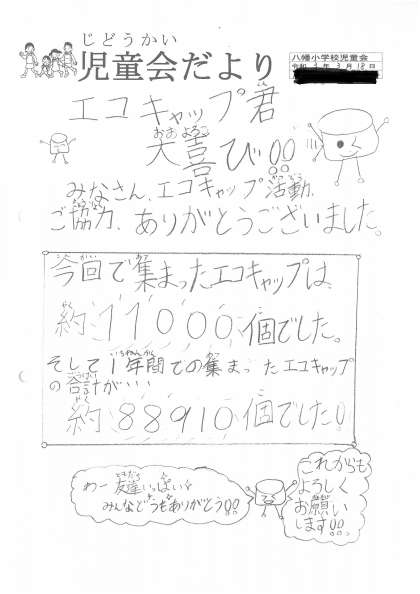 じどうかい
児童会だより
八幡小学校児童会
令和3年3月18日
エコキャップ君
おおよろこ
大喜び!!
みなさん、エコキャップ活動、
ご協力、ありがとうございました。
今回で集まったエコキャップは、
約11000個でした。
そして1年間での集まったエコキャップ
の合計が、、、
約88910個でした!
わー友達いっぱい
みんなどうもありがとう!!
これからも
よろしく
お願い
します!!